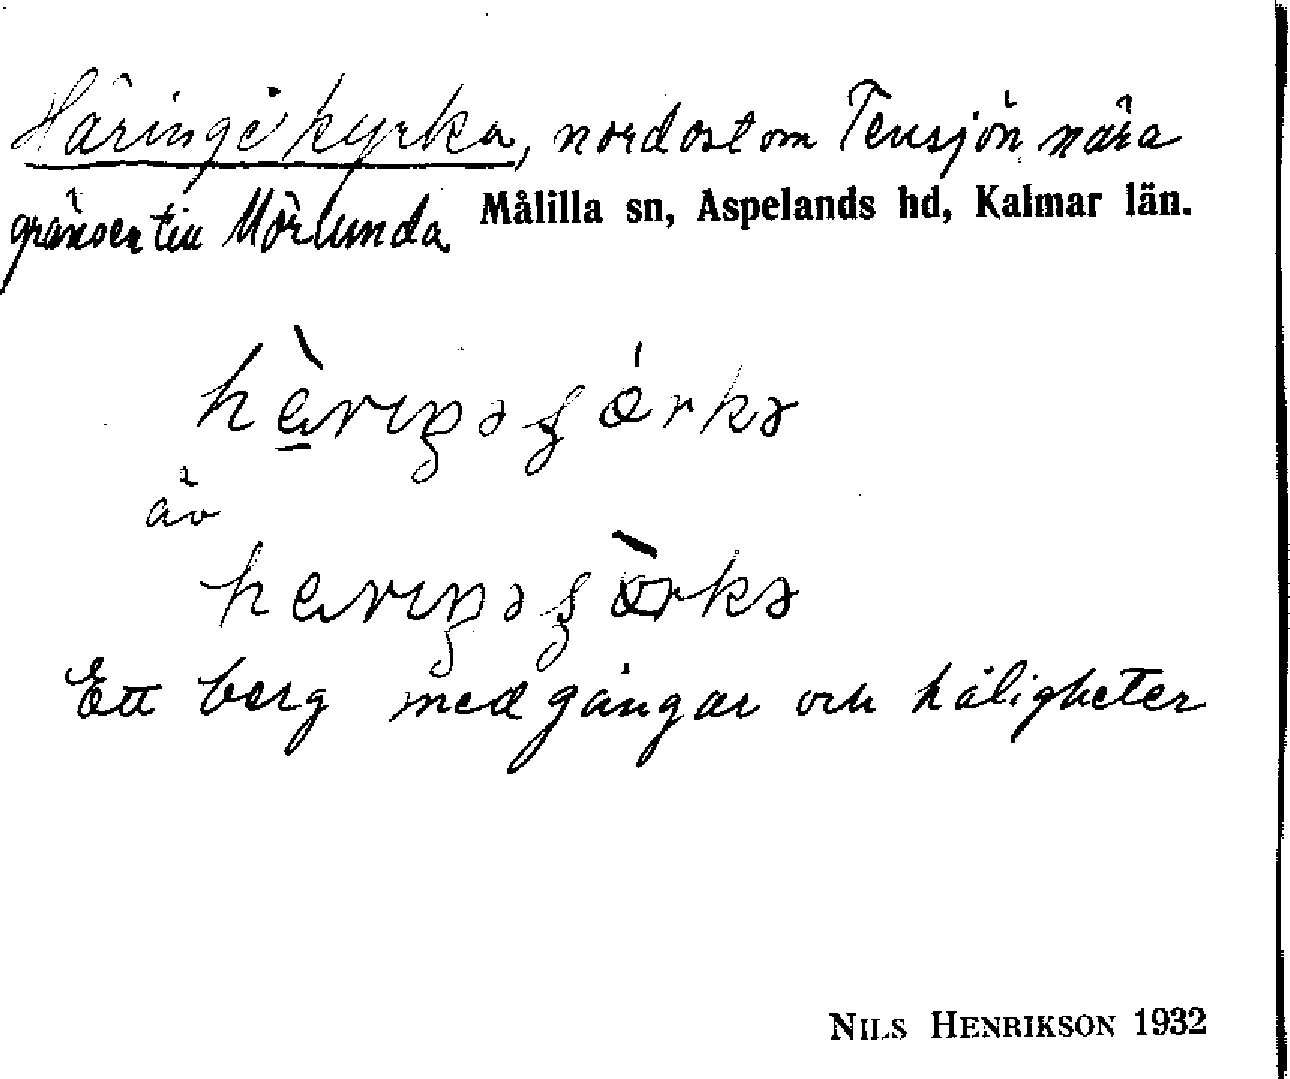 Häringe kyrka, nordost om Tensjön nära
gränsen till Mörlunda Målilla sn, Aspelands hd, Kalmar län.
äv
Ett berg med gångar och håligheter
NILS HENRIKSON 1932